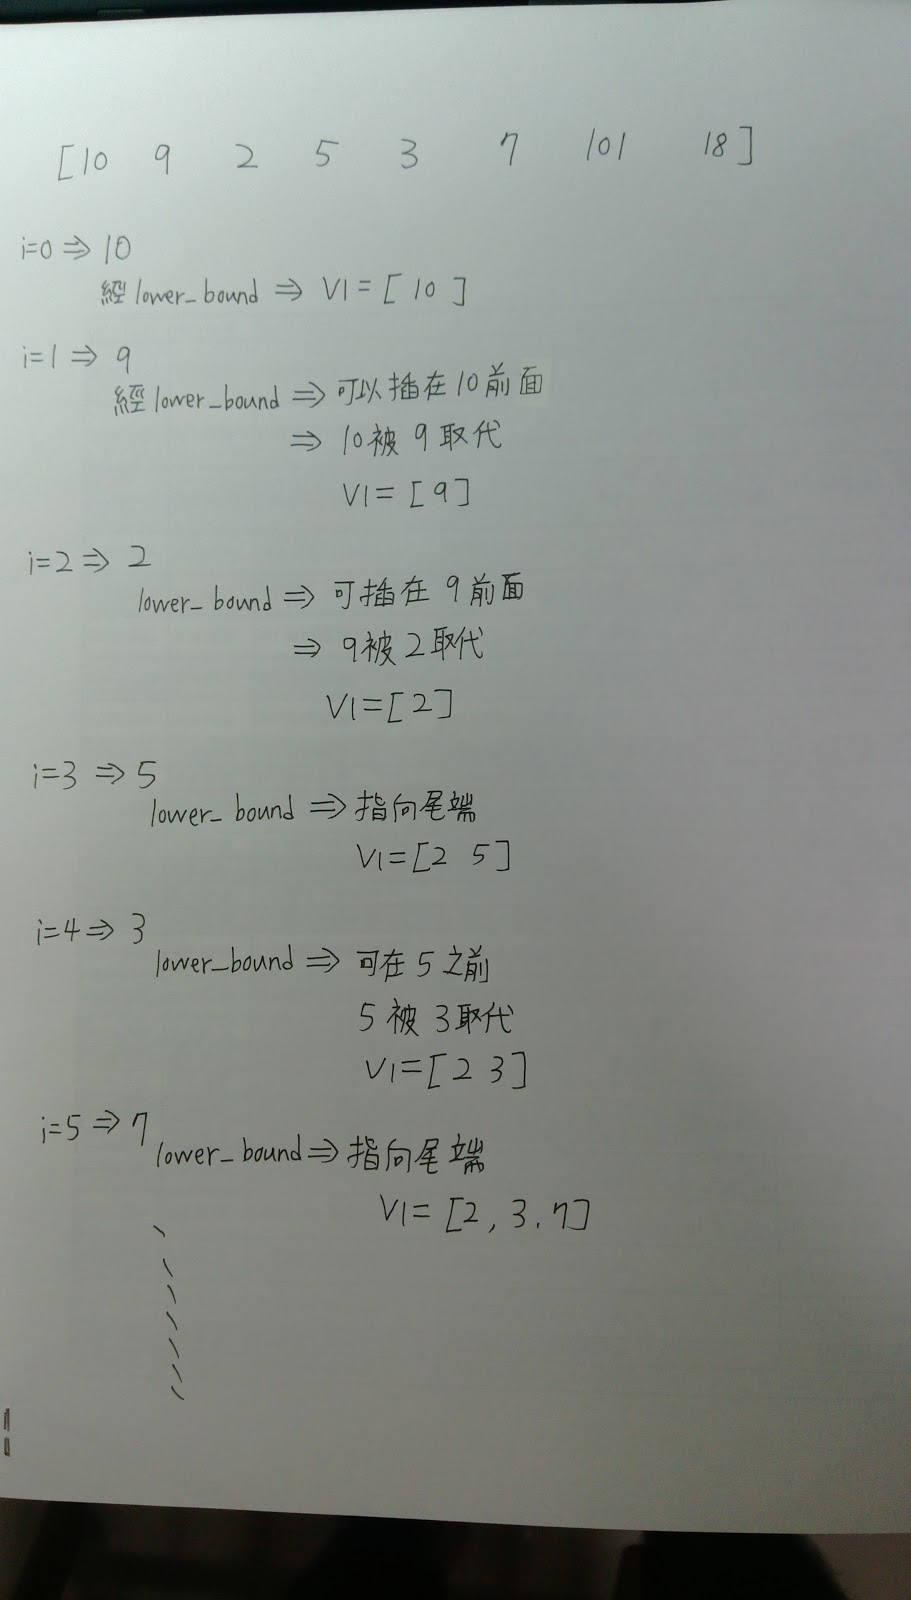 [10 9 2 5 3 7 101 18]
i=0 ⇒ 10
經 lower_bound ⇒ V1 = [ 10 ]
i=1 ⇒ 9
經 lower_bound ⇒ 可以插在10前面
⇒ 10被 9 取代
V1= [9]
i=2 ⇒ 2
lower_bound ⇒ 可插在 9前面
⇒ 9被 2取代
V1=[2]
i=3 ⇒ 5
lower_bound ⇒ 指向尾端
V1=[2 5]
i=4 ⇒ 3
lower_bound ⇒ 可在 5 之前
5 被 3取代
V1=[2 3]
i=5 ⇒ 7
lower_bound ⇒ 指向尾端
V1= [2, 3.7]